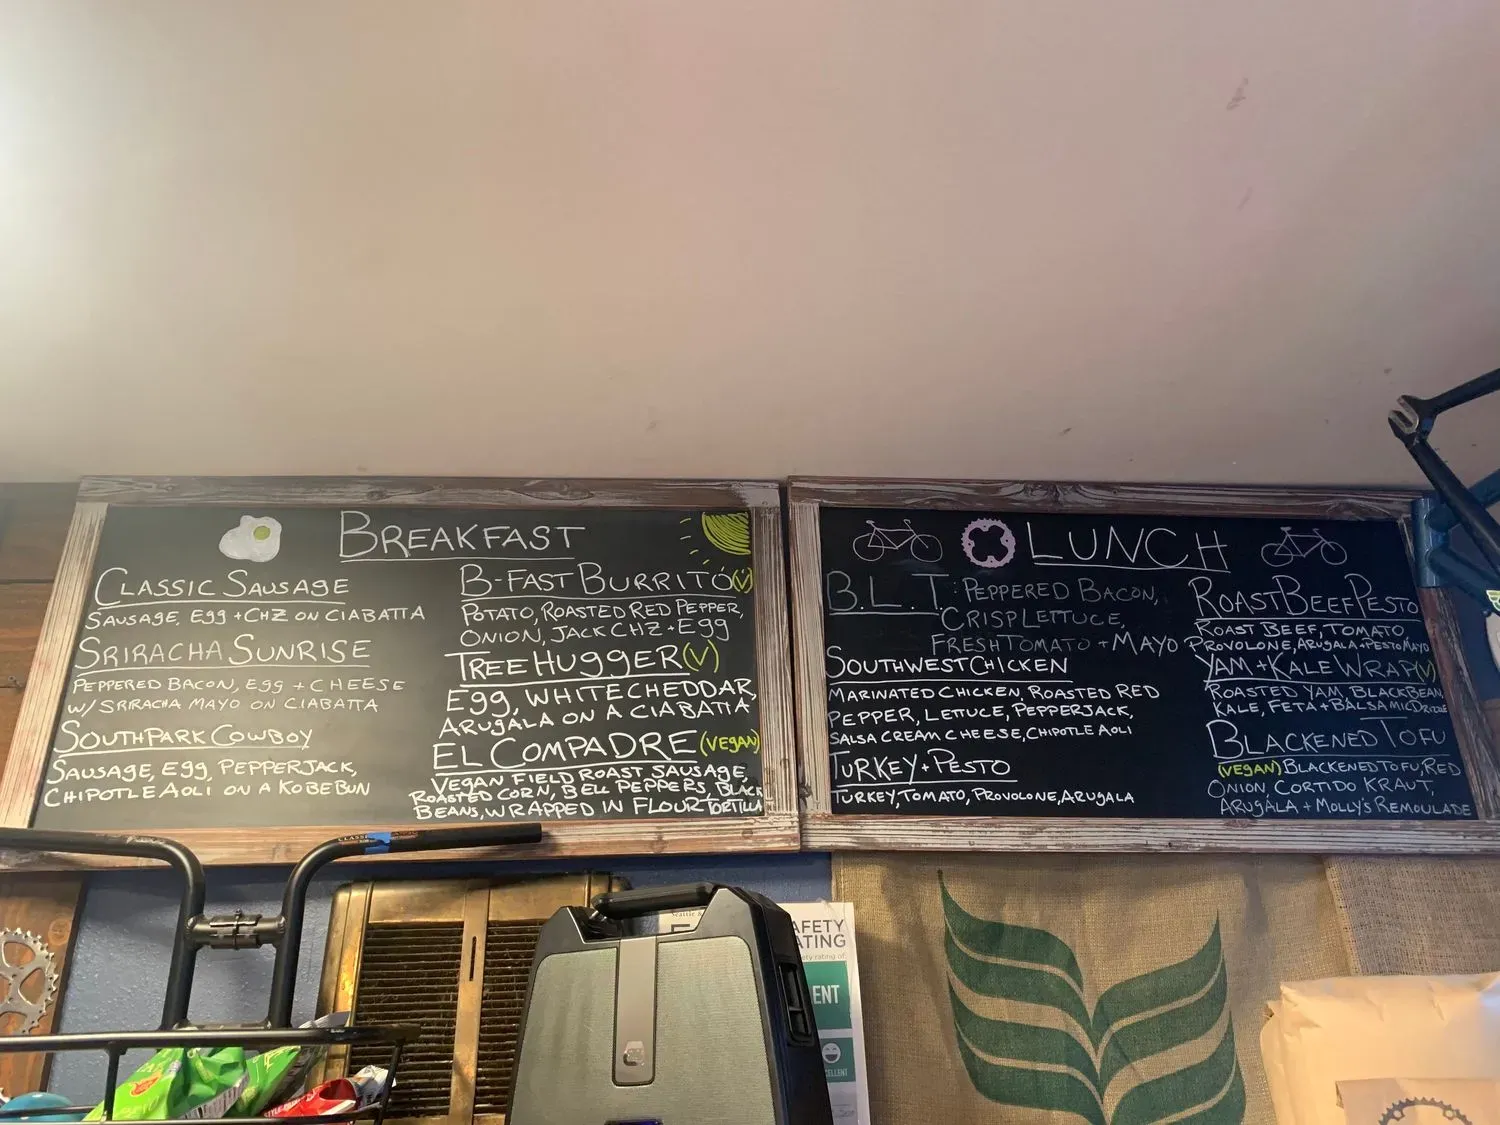 BREAKFAST
CLASSIC SAUSAGE
SAUSAGE, EGG + CHZ ON CIABATTA
SRIRACHA SUNRISE
PEPPERED BACON, EGG + CHEESE
W/ SRIRACHA MAYO ON CIABATTA
SOUTHPARK COWBOY
SAUSAGE, EGG, PEPPERJACK,
CHIPOTLE AOLI ON A KOBEBUN
B-FAST BURRITO (V)
POTATO, ROASTED RED PEPPER,
ONION, JACK CHZ + EGG
TREE HUGGER (V)
EGG, WHITE CHEDDAR,
ARUGALA ON A CIABATTA
EL COMPADRE (VEGAN)
VEGAN FIELD ROAST SAUSAGE,
ROASTED CORN, BELL PEPPERS, BLACK
BEANS, WRAPPED IN FLOUR TORTILLA
LUNCH
B.L.T: PEPPERED BACON,
CRISP LETTUCE,
FRESH TOMATO + MAYO
SOUTHWEST CHICKEN
MARINATED CHICKEN, ROASTED RED
PEPPER, LETTUCE, PEPPERJACK,
SALSA CREAM CHEESE, CHIPOTLE AOLI
TURKEY + PESTO
TURKEY, TOMATO, PROVOLONE, ARUGALA
ROAST BEEF PESTO
ROAST BEEF, TOMATO,
PROVOLONE, ARUGALA + PESTO MAYO
YAM + KALE WRAP (V)
ROASTED YAM, BLACK BEAN
KALE, FETA + BALSAMIC DRIZZLE
BLACKENED TOFU
(VEGAN) BLACKENED TOFU, RED
ONION, CORTIDO KRAUT,
ARUGALA + MOLLY'S REMOULADE
Seattle &
AFETY
ATING
ety rating of
ENT
CELLENT